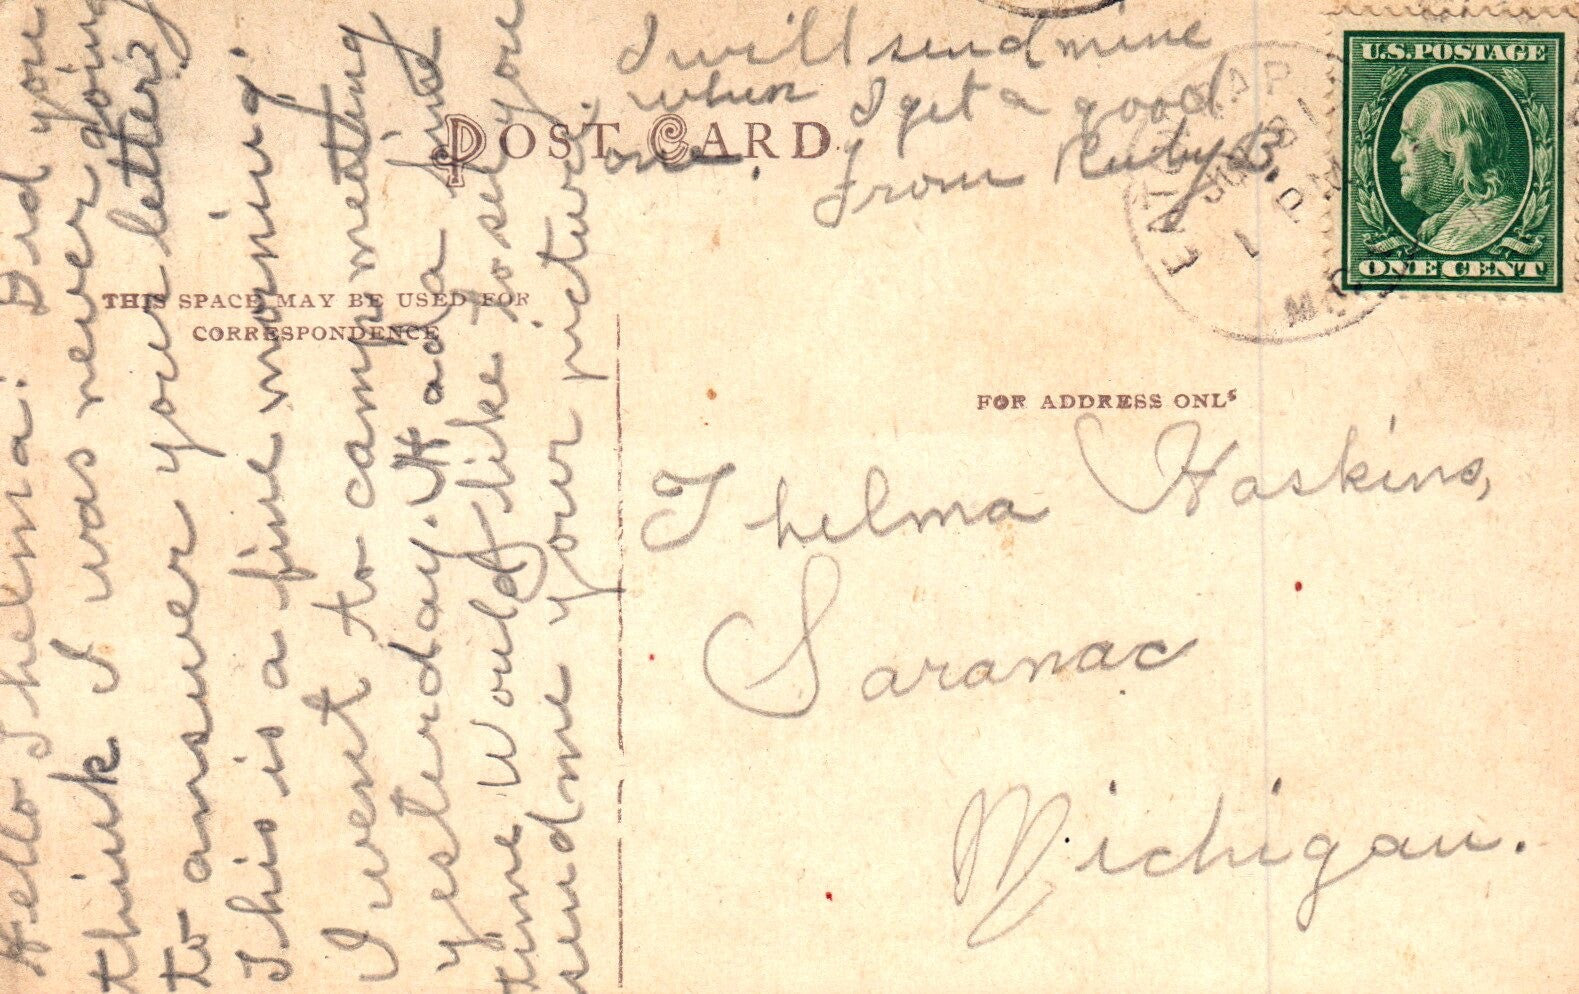 Hello Thelma: Did you
think I was never going
to answer your letter?
This is a fine morning.
I went to camp meetting
yesterday. Had a fine
time Would like to see you
send me your picture,
I will send mine
when I get a good
one. from Ruby B.
POST CARD
THIS SPACE MAY BE USED FOR
CORRESPONDENCE
FOR ADDRESS ONLY
Thelma Haskins,
Saranac
Michigan.
U.S. POSTAGE
ONE CENT
EATON RAP
1 PM
MICH